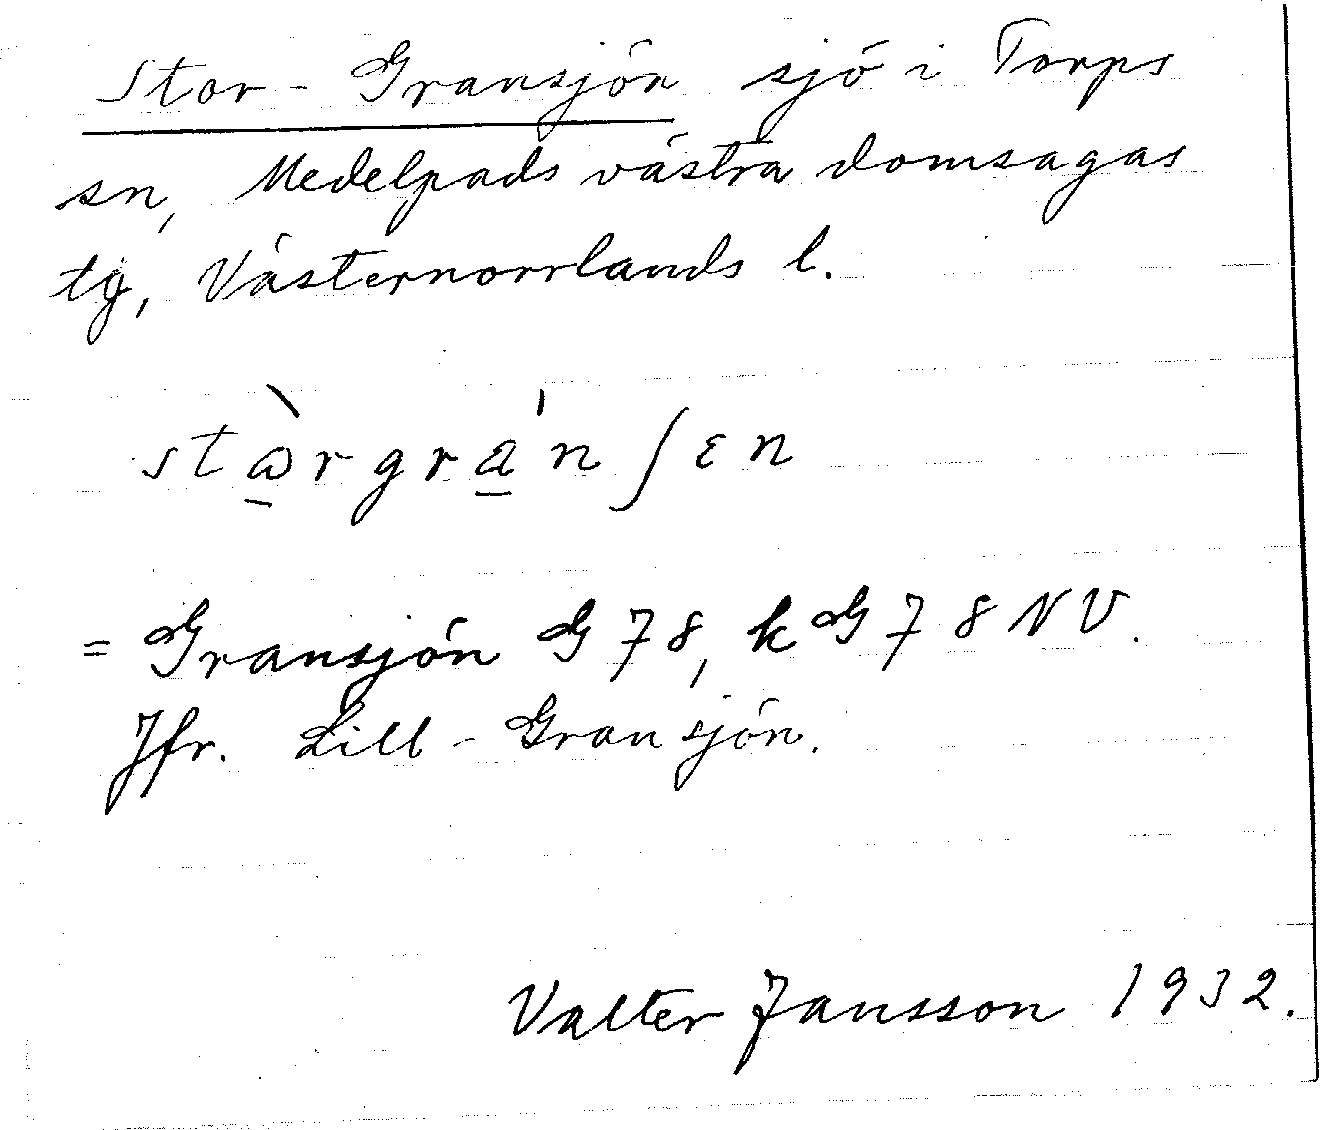 Stor-Gransjön sjö i Torps
sn, Medelpads västra domsagas
tg, Västernorrlands l.
= Gransjön G 78, k G 78 NV.
Jfr. Lill-Gransjön.
Valter Jansson 1932.